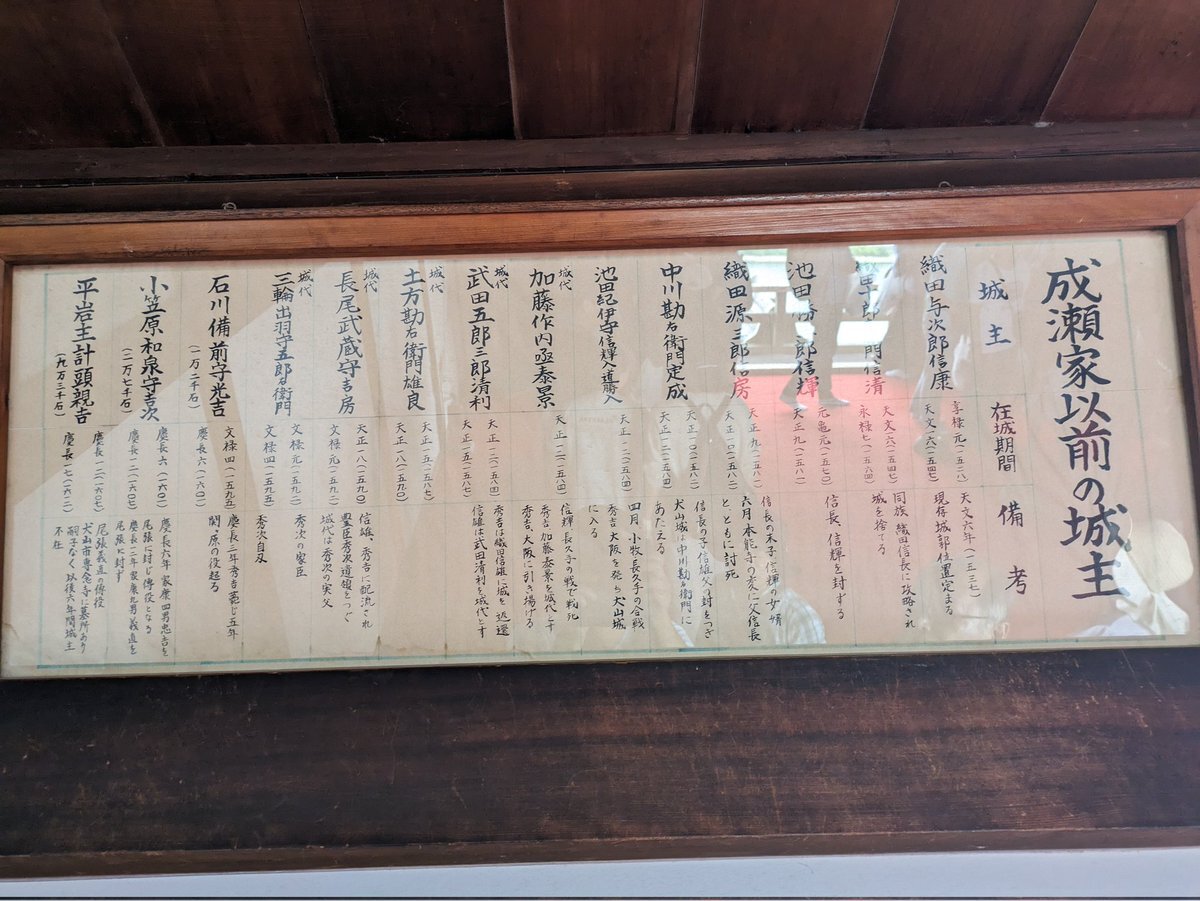 成瀬家以前の城主
城主
在城期間
備考
織田与次郎信康
享禄元(一五二八)
天文一六(一五四七)
天文六年(一五三七)
現存城郭位置定まる
郎 門信清
天文一六(一五四七)
永禄七(一五六四)
同族 織田信長に攻略され
城を捨てる
池田勝 郎信輝
元亀元(一五七〇)
天正九(一五八一)
信長、信輝を封ずる
織田源三郎信房
天正九(一五八一)
天正一〇(一五八二)
信長の末子 信輝の女婿
六月本能寺の変に父信長
と、ともに討死
中川勘右衛門定成
天正一〇(一五八二)
天正一二(一五八四)
信長の子信雄父の封をつぎ
犬山城は中川勘右衛門に
あたえる
池田紀伊守信輝入道勝入
天正一二(一五八四)
四月、小牧長久手の合戦
秀吉大阪を発ち犬山城
に入る
城代
加藤作内亟泰景
天正一二(一五八四)
信輝長久手の戦で戦死
秀吉 加藤泰景を城代とす
秀吉大阪に引き揚げる
城代
武田五郎三郎清利
天正一二(一五八四)
天正一五(一五八七)
秀吉は織田信雄に城を返還
信雄は武田清利を城代とす
城代
土方勘右衛門雄良
天正一五(一五八七)
天正一八(一五九〇)
城代
長尾武蔵守吉房
天正一八(一五九〇)
文禄元(一五九二)
信雄、秀吉に配流され
豊臣秀次遺領をつぐ
城代は秀次の実父
城代
三輪出羽守五郎右衛門
文禄元(一五九二)
文禄四(一五九五)
秀次の家臣
秀次自刃
石川備前守光吉
(一万二千石)
文禄四(一五九五)
慶長六(一六〇一)
慶長三年秀吉薨じ五年
関ヶ原の役起る
小笠原和泉守吉次
(二万七千石)
慶長六(一六〇一)
慶長一二(一六〇七)
慶長六年 家康 四男忠吉を
尾張に封じ傅役となる
慶長一二年家康九男義直を
尾張に封ず
平岩主計頭親吉
(九万三千石)
慶長一二(一六〇七)
慶長一七(一六一二)
尾張義直の傅役
犬山市専念寺に墓所あり
嗣子なく以後六年間城主
不在